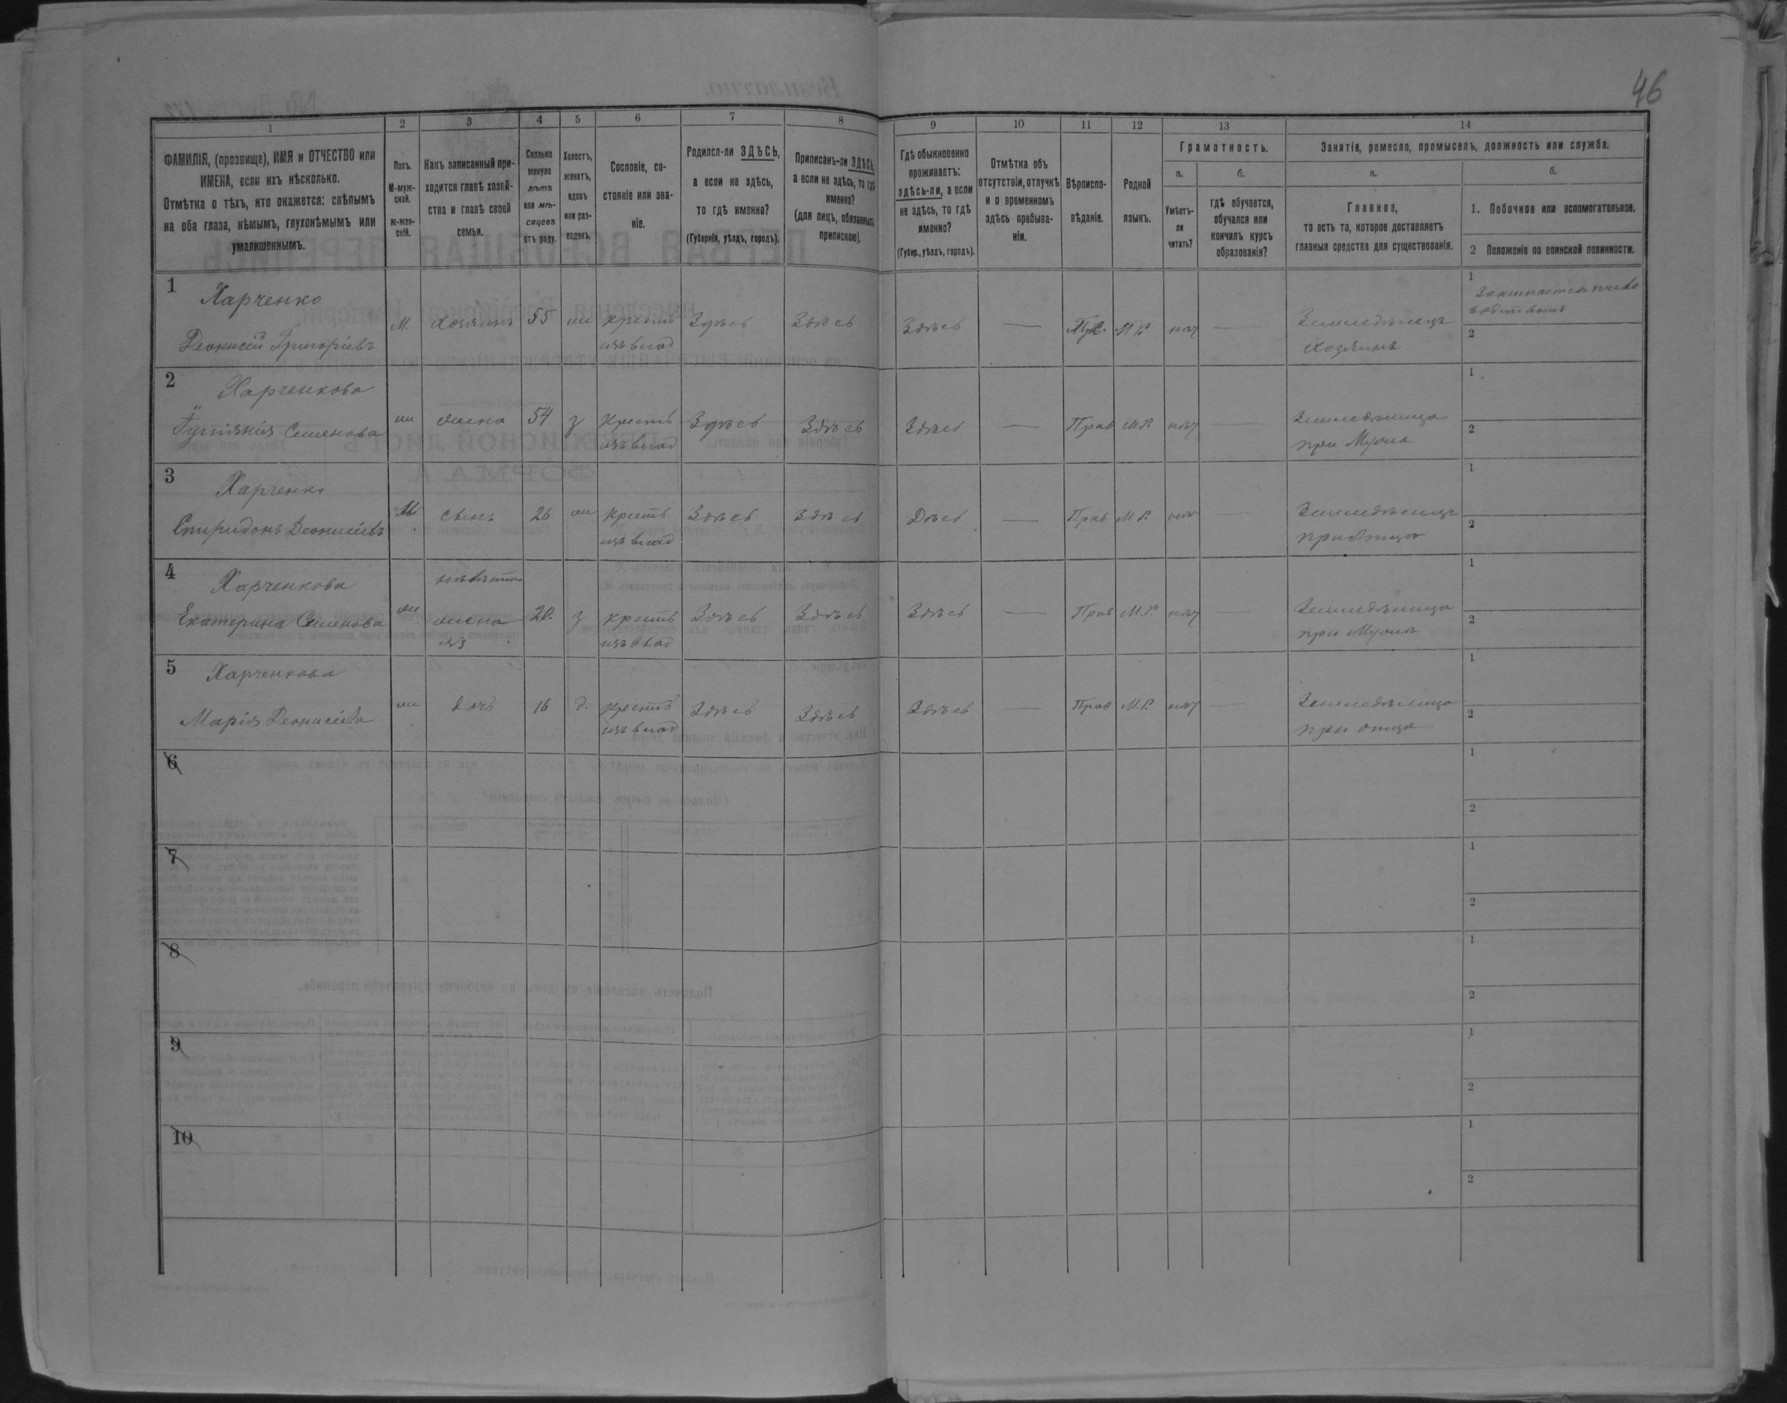 46
1 2 3 4 5 6 7 8 9 10 11 12 13 14
ФАМИЛІЯ, (прозвище), ИМЯ и ОТЧЕСТВО или
ИМЕНА, если ихъ нѣсколько.
Отмѣтка о тѣхъ, кто окажется: слѣпымъ
на оба глаза, нѣмымъ, глухонѣмымъ или
умалишеннымъ.
Полъ.
М-муж-
ской.
ж-жен-
скій.
Какъ записанный при-
ходится главѣ хозяй-
ства и главѣ своей
семьи.
Сколько
минуло
лѣтъ
или мѣ-
сяцевъ
отъ роду.
Холостъ,
женатъ,
вдовъ
или раз-
веденъ.
Сословіе, со-
стояніе или зва-
ніе.
Родился-ли ЗДѢСЬ,
а если не здѣсь,
то гдѣ именно?
(Губернія, уѣздъ, городъ).
Приписанъ-ли ЗДѢСЬ,
а если не здѣсь, то гдѣ
именно?
(для лицъ, обязанныхъ
припискою).
Гдѣ обыкновенно
проживаетъ:
здѣсь-ли, а если
не здѣсь, то гдѣ
именно?
(Губер., уѣздъ, городъ).
Отмѣтка объ
отсутствіи, отлучкѣ
и о временномъ
здѣсь пребыва-
ніи.
Вѣроиспо-
вѣданіе.
Родной
языкъ.
Грамотность.
а.
Умѣетъ-
ли
читать?
б.
гдѣ обучается,
обучался или
кончилъ курсъ
образованія?
Занятіе, ремесло, промыселъ, должность или служба.
а.
Главное,
то есть то, которое доставляетъ
главныя средства для существованія.
б.
1. Побочное или вспомогательное.
2 Положеніе по воинской повинности.
1
Харченко
Деонисій Григоріевъ
М. хозяинъ 55 крестъ Здѣсь Здѣсь Здѣсь — М.Р. —
Земледѣлецъ
хозяинъ
1
2
2
Харченкова
Семенова
жена 54 з крестъ Здѣсь Здѣсь Здѣсь — Прав М.Р. —
при Мужѣ
1
2
3
Харченко
Спиридонъ Деонисіевъ
М сынъ 26 крестъ Здѣсь Здѣсь — Прав М.Р. —
Земледѣлецъ
при отцѣ
1
2
4
Харченкова
Екатерина Семенова
невѣстка
жена
20. з крестъ Здѣсь Здѣсь Здѣсь — Прав М.Р. —
при Мужѣ
1
2
5
Харченкова
Марія Деонисіева
дочь 16 д. крестъ Здѣсь Здѣсь Здѣсь — Прав М.Р. —
при отцѣ
1
2
6
1
2
7
1
2
8
1
2
9
1
2
10
1
2